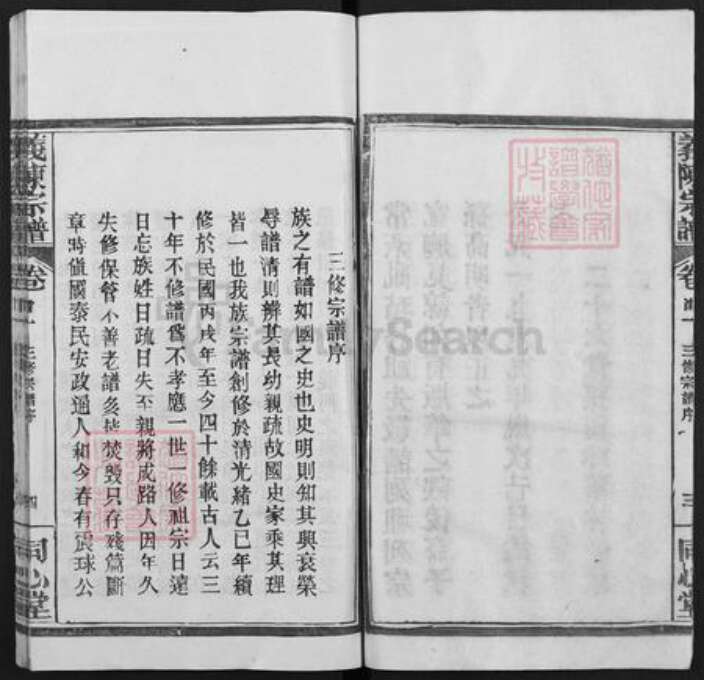 義陳宗譜
卷首一
三修宗譜序
三
同心堂
三修宗譜序
族之有譜如國之史也史明則知其興衰榮
辱譜清則辨其長幼親疏故國史家乘其理
皆一也我族宗譜創修於清光緒乙巳年續
修於民國丙戌年至今四十餘載古人云三
十年不修譜爲不孝應一世一修祖宗日遠
日忘族姓日疏日失至親將成路人因年久
失修保管不善老譜多皆焚毀只存殘篇斷
章時值國泰民安政通人和今春有球公
義陳宗譜
卷首一
三修宗譜序
四
同心堂
FamilySearch